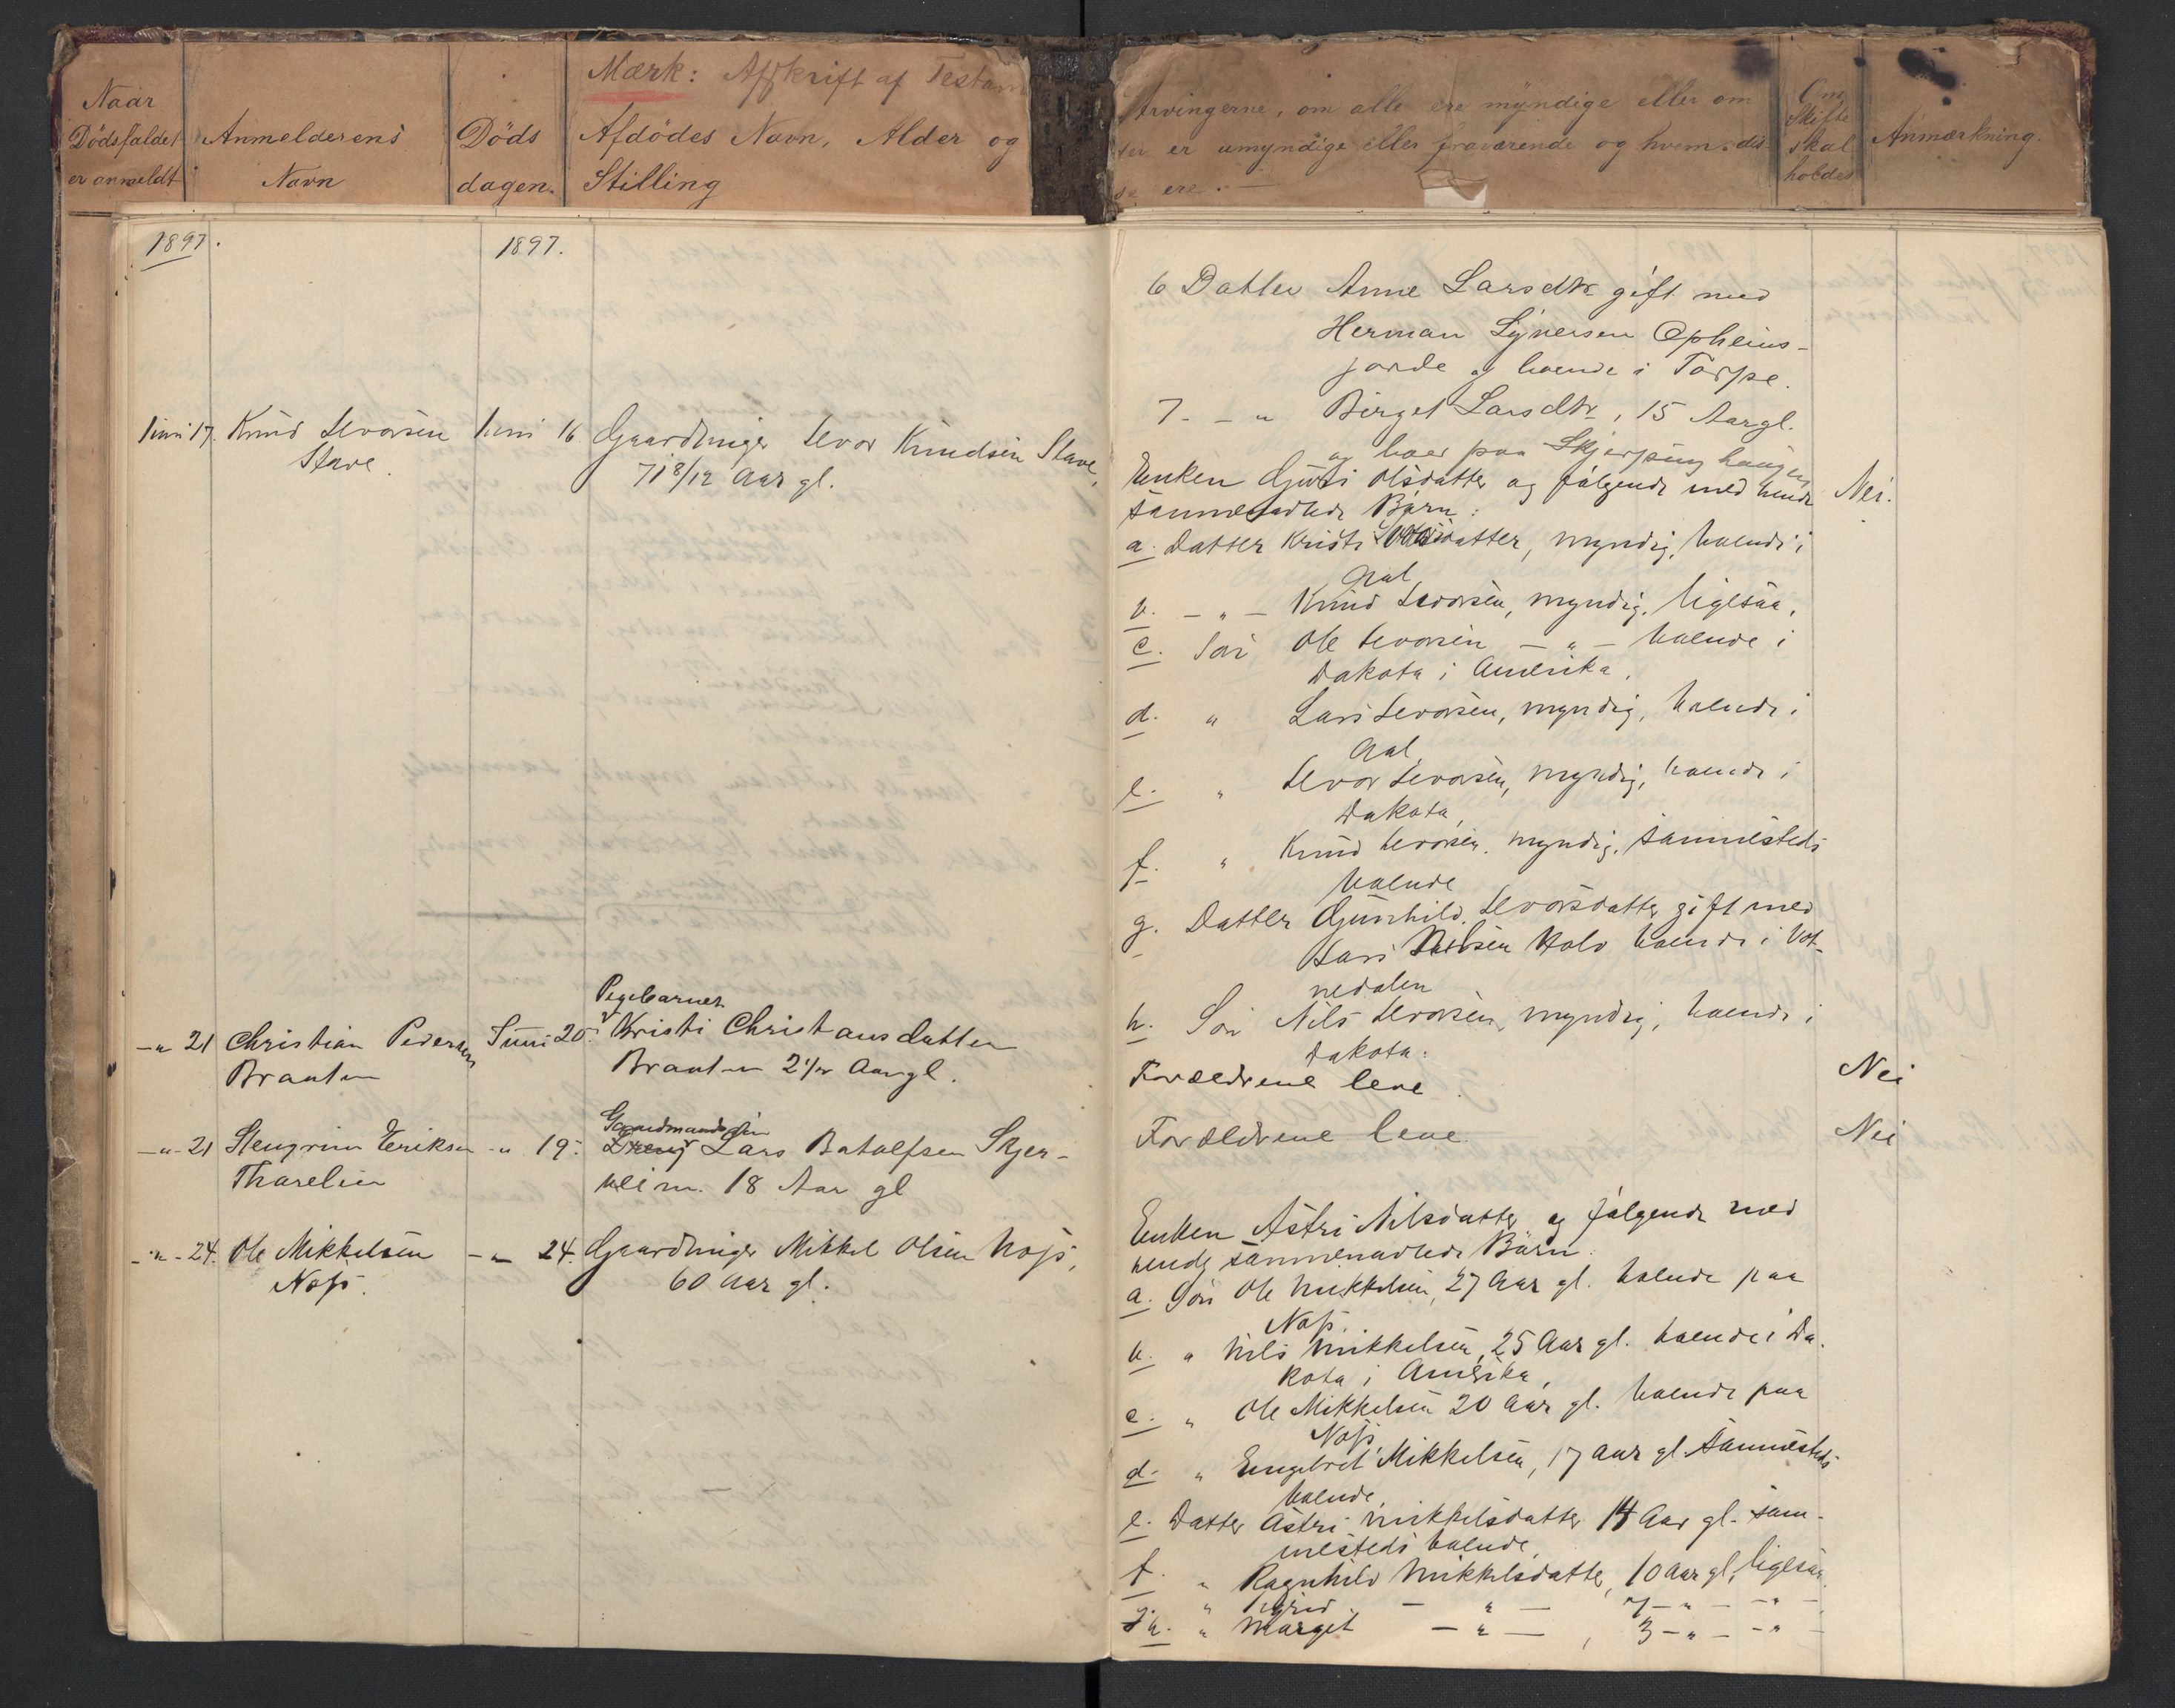 Mærk: Afskrift af Testam
Naar
Dødsfaldet
er anmeldt
Anmelderens
Navn
Døds
dagen.
Afdødes Navn, Alder og
Stilling
Arvingerne, om alle ere myndige eller om
der er umyndige eller fraværende og hvem dis-
se ere. —
Om
Skifte
skal
holdes
Anmærkning.
1897.
1897.
6 Datter Anne Larsdtr gift med
Herman Syversen Opheims-
jorde og boende i Torpe.
7 - " Birget Larsdtr, 15 Aar gl.
og boer paa Skjerping haugen
Juni 17. Knud Levorsen Juni 16 Gaardbruger Levor Knudsen Stave,
Stave.
71 8/12 Aar gl.
Enken Guri Olsdatter og følgende med hende Nei.
sammenavlede Børn:
a. Datter Kristi Levorsdatter, myndig, boende i
Aal,
b. - " - Knud Levorsen, myndig, ligesaa,
c. Søn Ole Levorsen - " - boende i
Dakota i Amerika,
d. " Lars Levorsen, myndig, boende i
Aal,
e. " Levor Levorsen, myndig, boende i
Dakota,
f. " Knud Levorsen, myndig, sammesteds
boende
g. Datter Gunhild Levorsdatter gift med
Lars Nilsen Holo boende i Vot-
nedalen
h. Søn Nils Levorsen, myndig, boende i
Dakota.
-"- 21 Christian Pedersen Juni 20. Pigebarnet Kristi Christiansdatter
Braaten
Braaten 2 1/2 Aar gl.
Forældrene leve. Nei
-"- 21 Stengrim Eriksen -" 19. Gaardmandssøn Lars Botolfsen Skjer-
Tharelien
veim. 18 Aar gl
Forældrene leve. Nei
-"- 24. Ole Mikkelsen -"- 24. Gaardbruger Mikkel Olsen Nos,
Nos.
60 Aar gl.
Enken Astri Nilsdatter og følgende med
hende sammenavlede Børn.
a. Søn Ole Mikkelsen, 27 Aar gl. boende paa
Nos.
b. " Nils Mikkelsen, 25 Aar gl. boende i Da-
kota i Amerika,
c. " Ole Mikkelsen 20 Aar gl. boende paa
Nos,
d. " Engebret Mikkelsen, 17 Aar gl. sammesteds
boende,
e. Datter Astri Mikkelsdatter 14 Aar gl. sam-
mesteds boende,
f. " Ragnhild Mikkelsdatter, 10 Aar gl, ligesaa,
" Sigrid - " - 7 - " - - " -
h. " Margit - " -, 3 - " - - " -